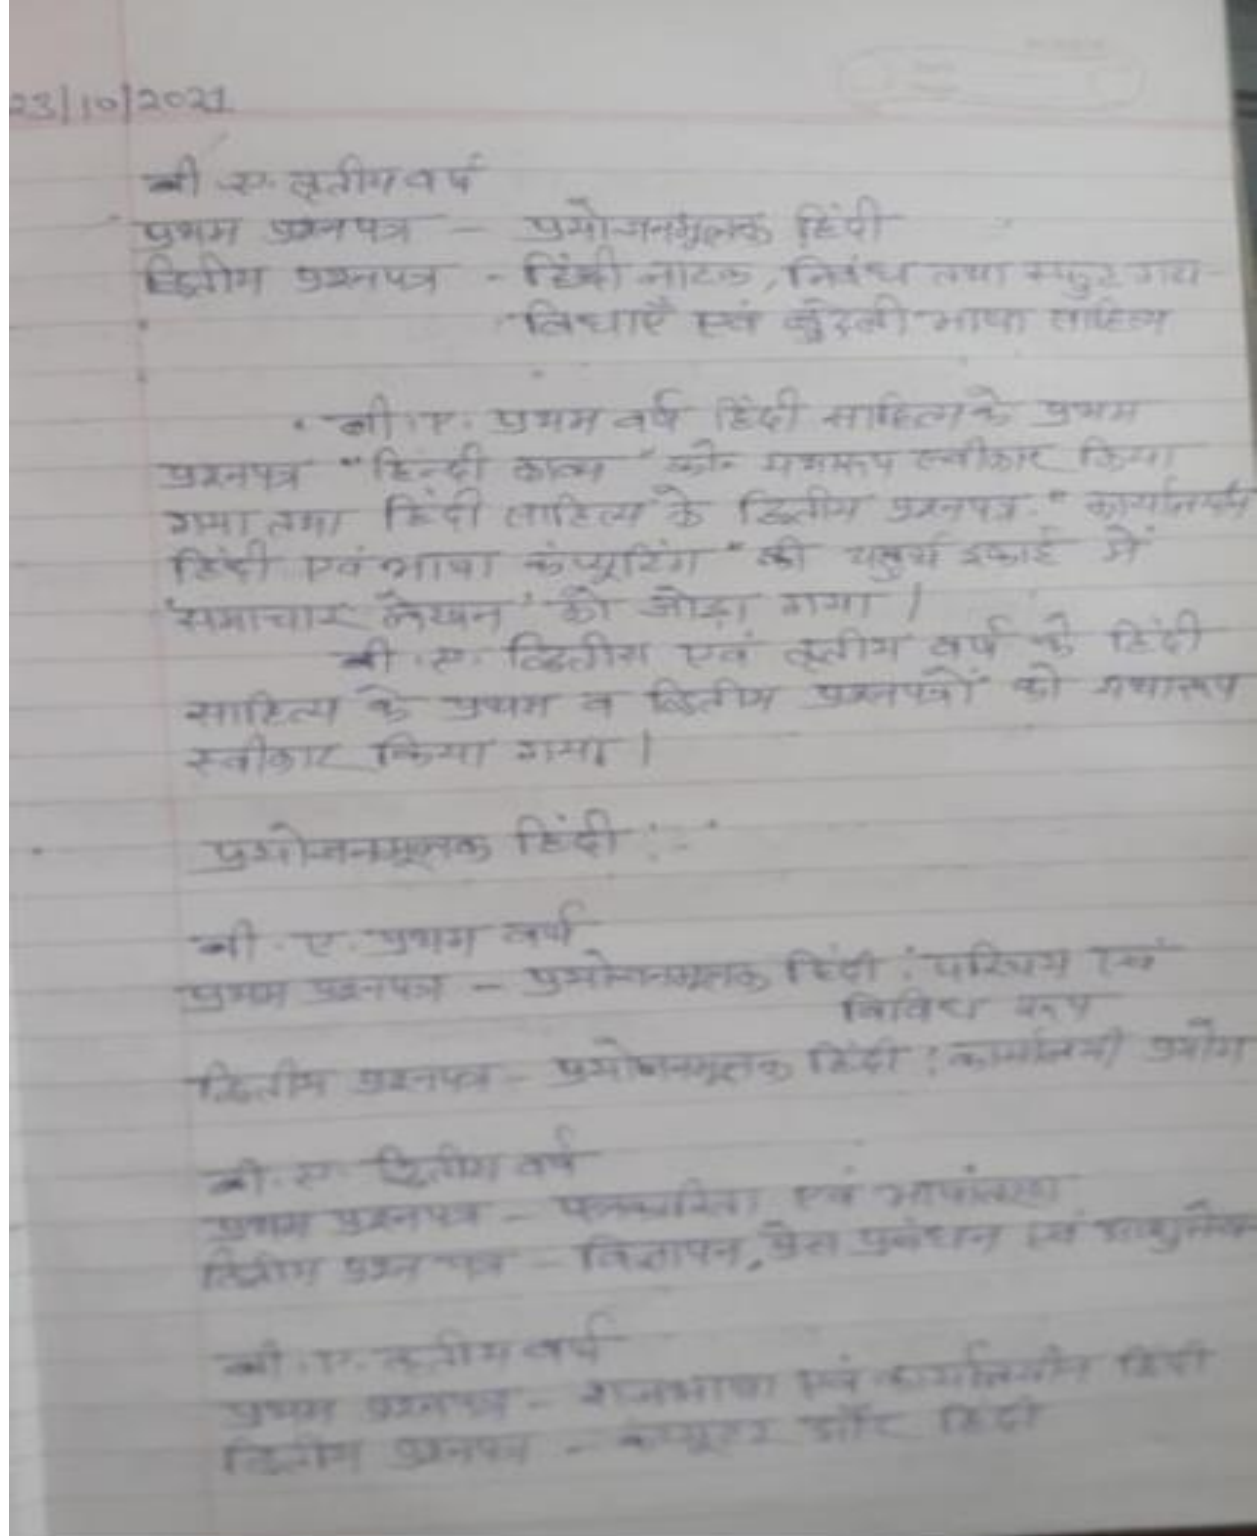 23/10/2021
बी.ए. तृतीय वर्ष
प्रथम प्रश्नपत्र - प्रयोजनमूलक हिंदी
द्वितीय प्रश्नपत्र - हिंदी नाटक, निबंध तथा स्फुट गद्य
विधाएँ एवं बुंदेली भाषा साहित्य
बी.ए. प्रथम वर्ष हिंदी साहित्य के प्रथम
प्रश्नपत्र "हिन्दी काव्य" को यथारूप स्वीकार किया
गया तथा हिंदी साहित्य के द्वितीय प्रश्नपत्र "कार्यालयीन
हिंदी एवं भाषा कंप्यूटिंग" की चतुर्थ इकाई में
'समाचार लेखन' को जोड़ा गया।
बी.ए. द्वितीय एवं तृतीय वर्ष के हिंदी
साहित्य के प्रथम व द्वितीय प्रश्नपत्रों को यथारूप
स्वीकार किया गया।
प्रयोजनमूलक हिंदी :-
बी.ए. प्रथम वर्ष
प्रथम प्रश्नपत्र - प्रयोजनमूलक हिंदी : परिचय एवं
विविध रूप
द्वितीय प्रश्नपत्र - प्रयोजनमूलक हिंदी : कार्यालयी प्रयोग
बी.ए. द्वितीय वर्ष
प्रथम प्रश्नपत्र - पत्रकारिता एवं
द्वितीय प्रश्न पत्र - विज्ञापन, प्रेस प्रबंधन एवं
बी.ए. तृतीय वर्ष
प्रथम प्रश्नपत्र - राजभाषा एवं कार्यालयीन हिंदी
द्वितीय प्रश्नपत्र - कंप्यूटर और हिंदी